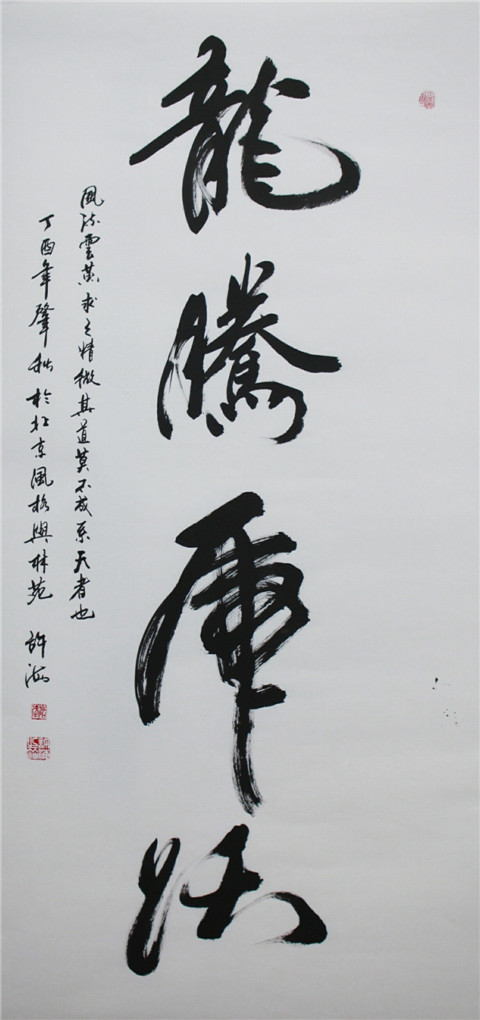 龍騰虎跃
風雲求之微其道莫不系天者也
丁酉年肇秋於北京風格與林苑 許海